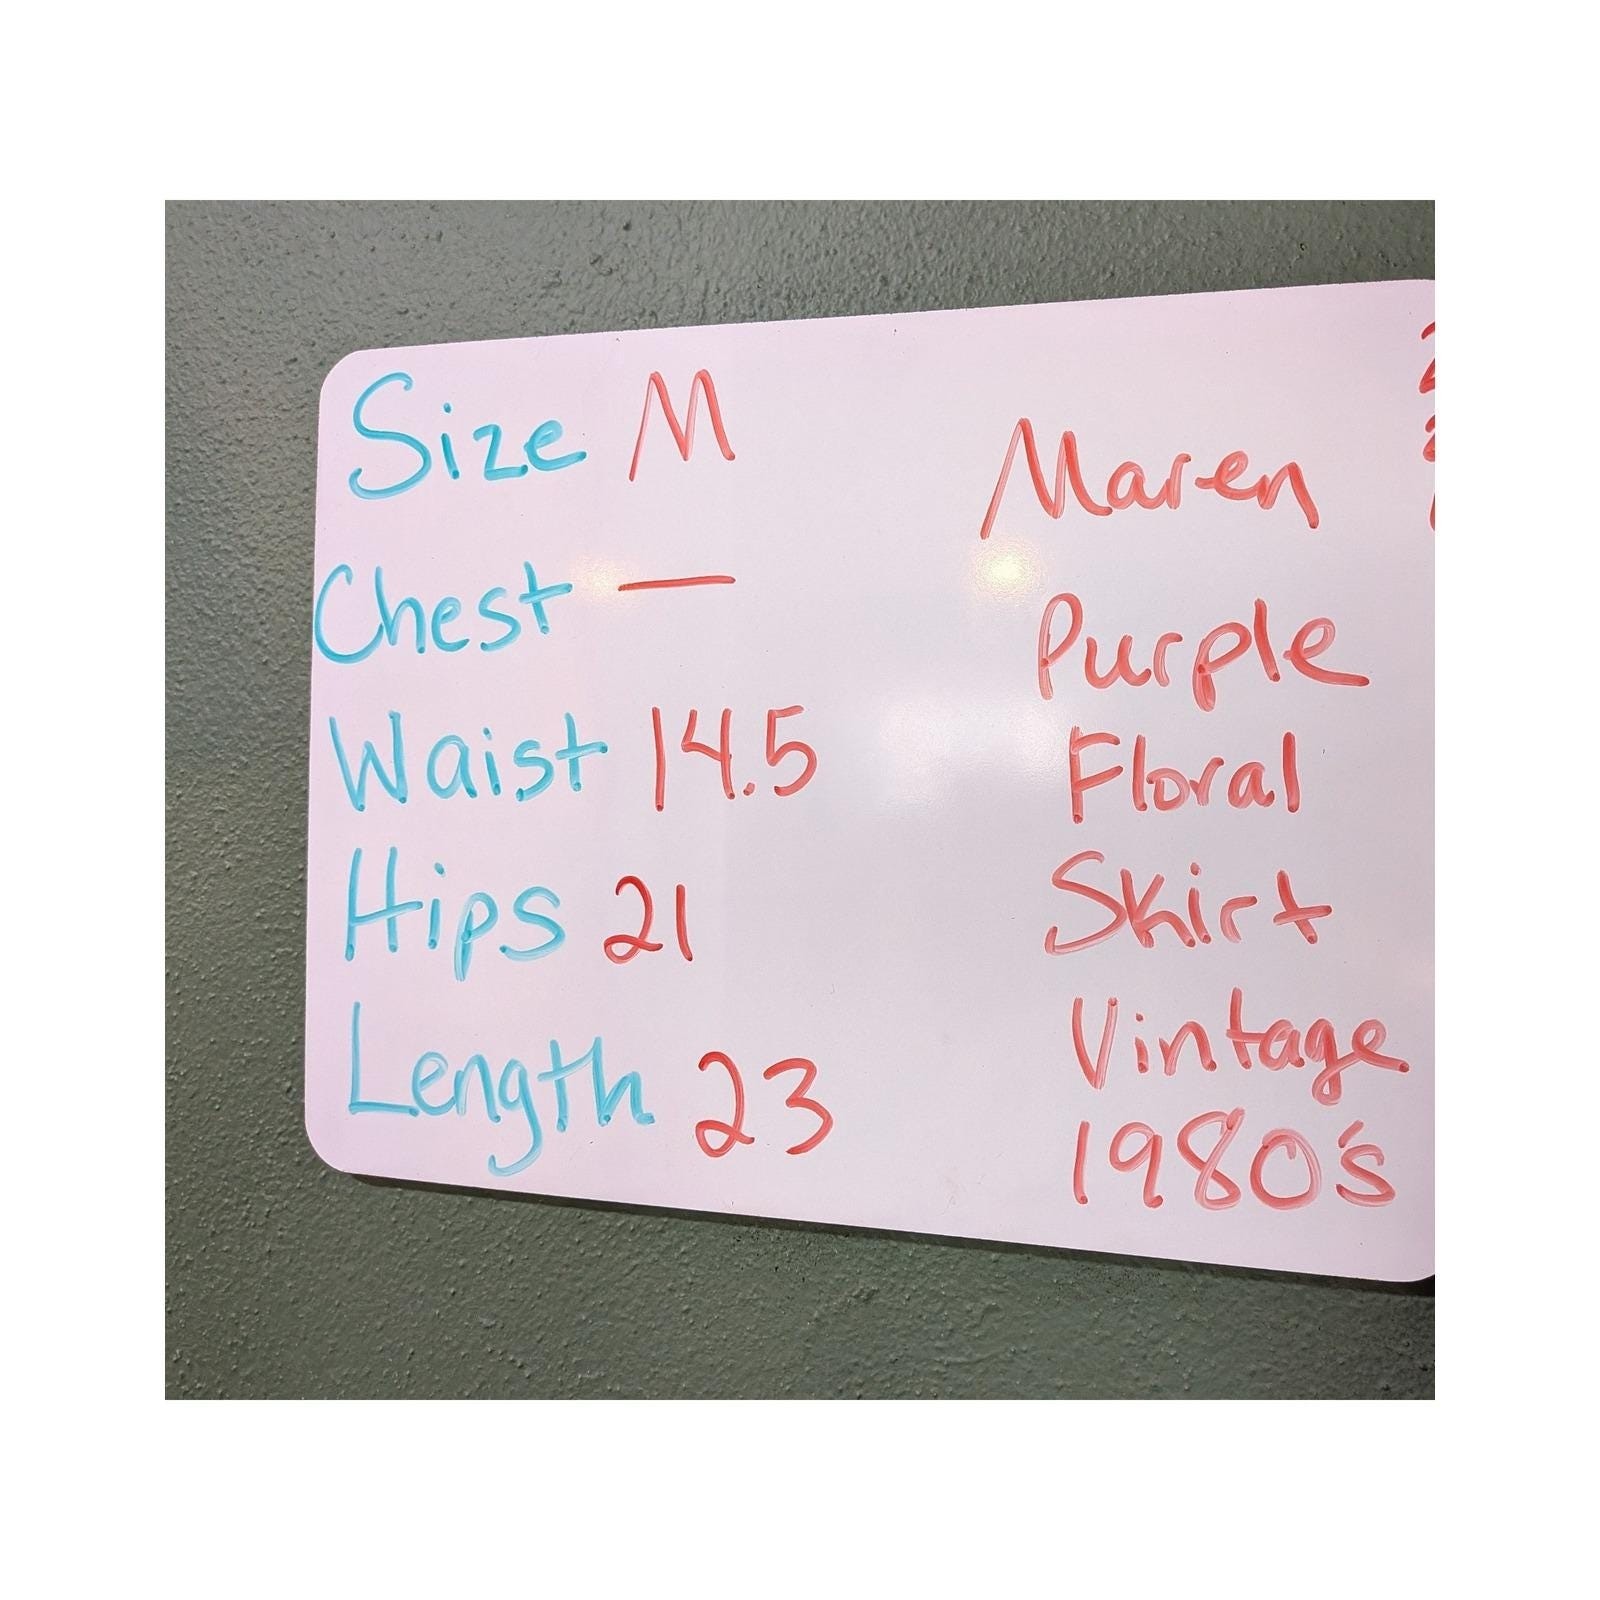 Size M
Chest —
Waist 14.5
Hips 21
Length 23
Maren
Purple
Floral
Skirt
Vintage
1980's